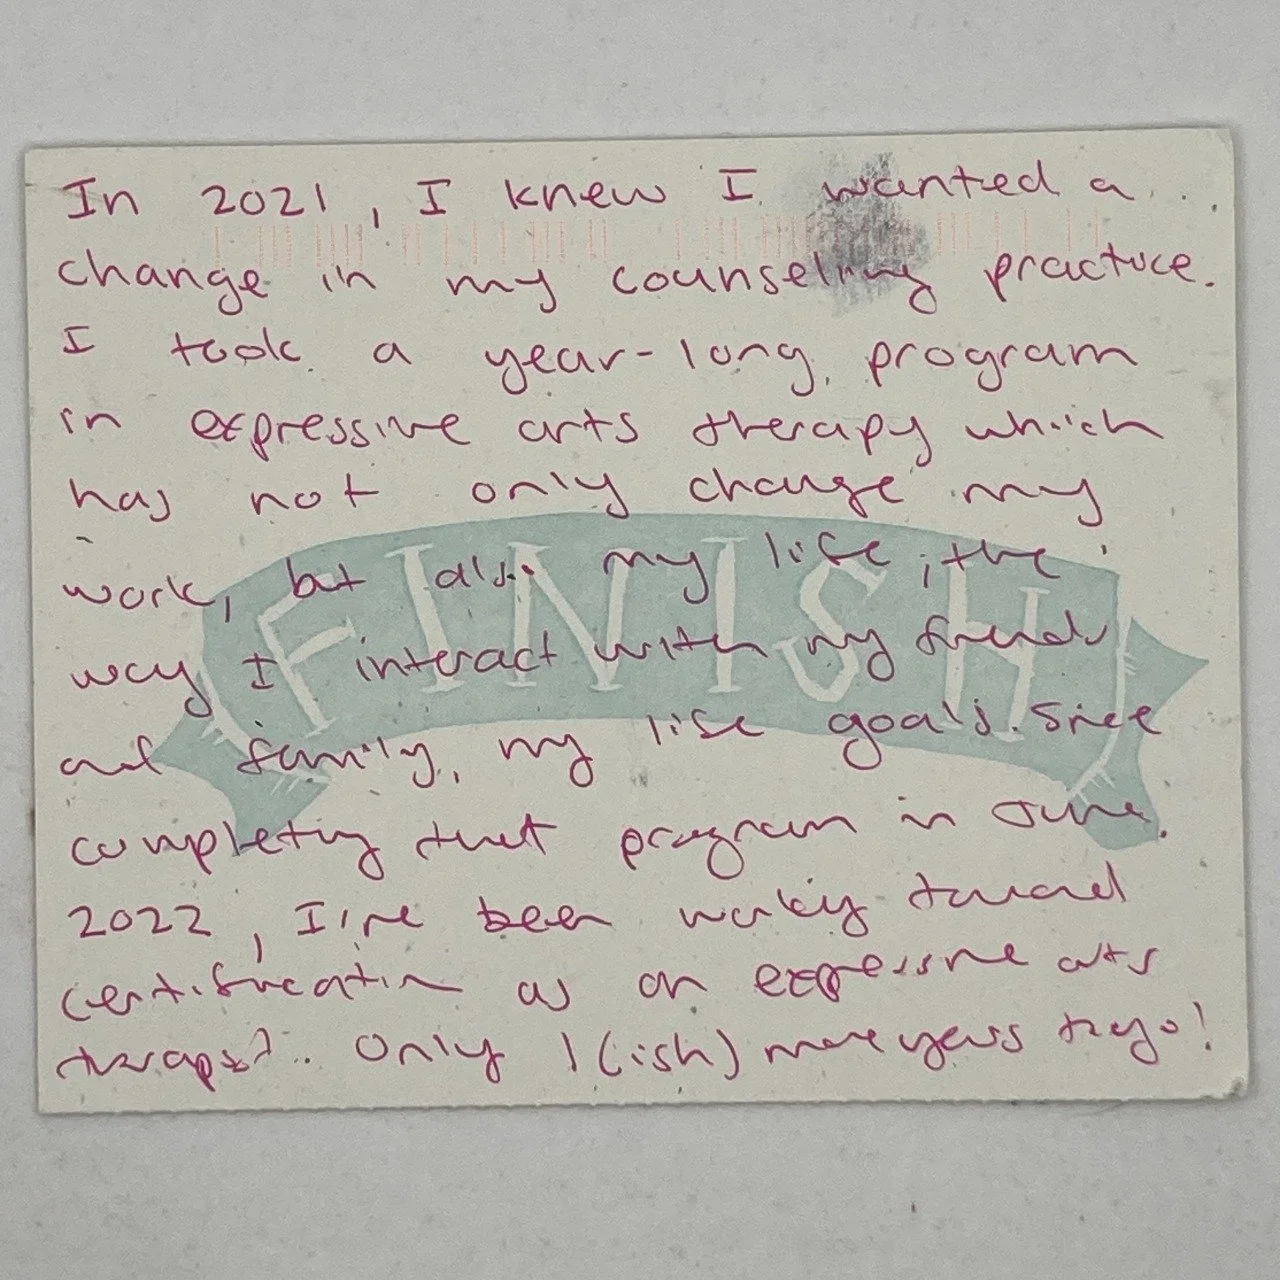 In 2021, I knew I wanted a
change in my counseling practice.
I took a year-long program
in expressive arts therapy which
has not only change my
work, but also my life, the
way I interact with my friends
and family, my life goals. Since
completing that program in June
2022, I've been working toward
certification as an expressive arts
therapist. Only 1 (ish) more years to go!
FINISH